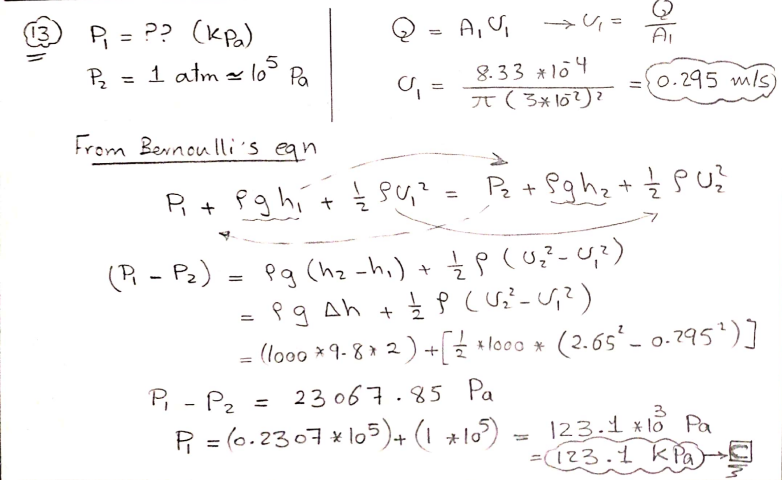 (13) P₁ = ?? (kPa)
P₂ = 1 atm ≃ 10⁵ Pa
Q = A₁ υ₁ → υ₁ = Q/A₁
υ₁ = 8.33 *10⁻⁴ / π ( 3*10⁻²)² = 0.295 m/s
From Bernoulli's eqn
P₁ + ρgh₁ + ½ ρυ₁² = P₂ + ρgh₂ + ½ ρ υ₂²
(P₁ - P₂) = ρg (h₂ - h₁) + ½ ρ ( υ₂² - υ₁²)
= ρg Δh + ½ ρ ( υ₂² - υ₁²)
= (1000 *9.8* 2) + [½ *1000 * (2.65² - 0.295²)]
P₁ - P₂ = 23067.85 Pa
P₁ = (0.2307 *10⁵) + (1 *10⁵) = 123.1 *10³ Pa
= 123.1 kPa → C